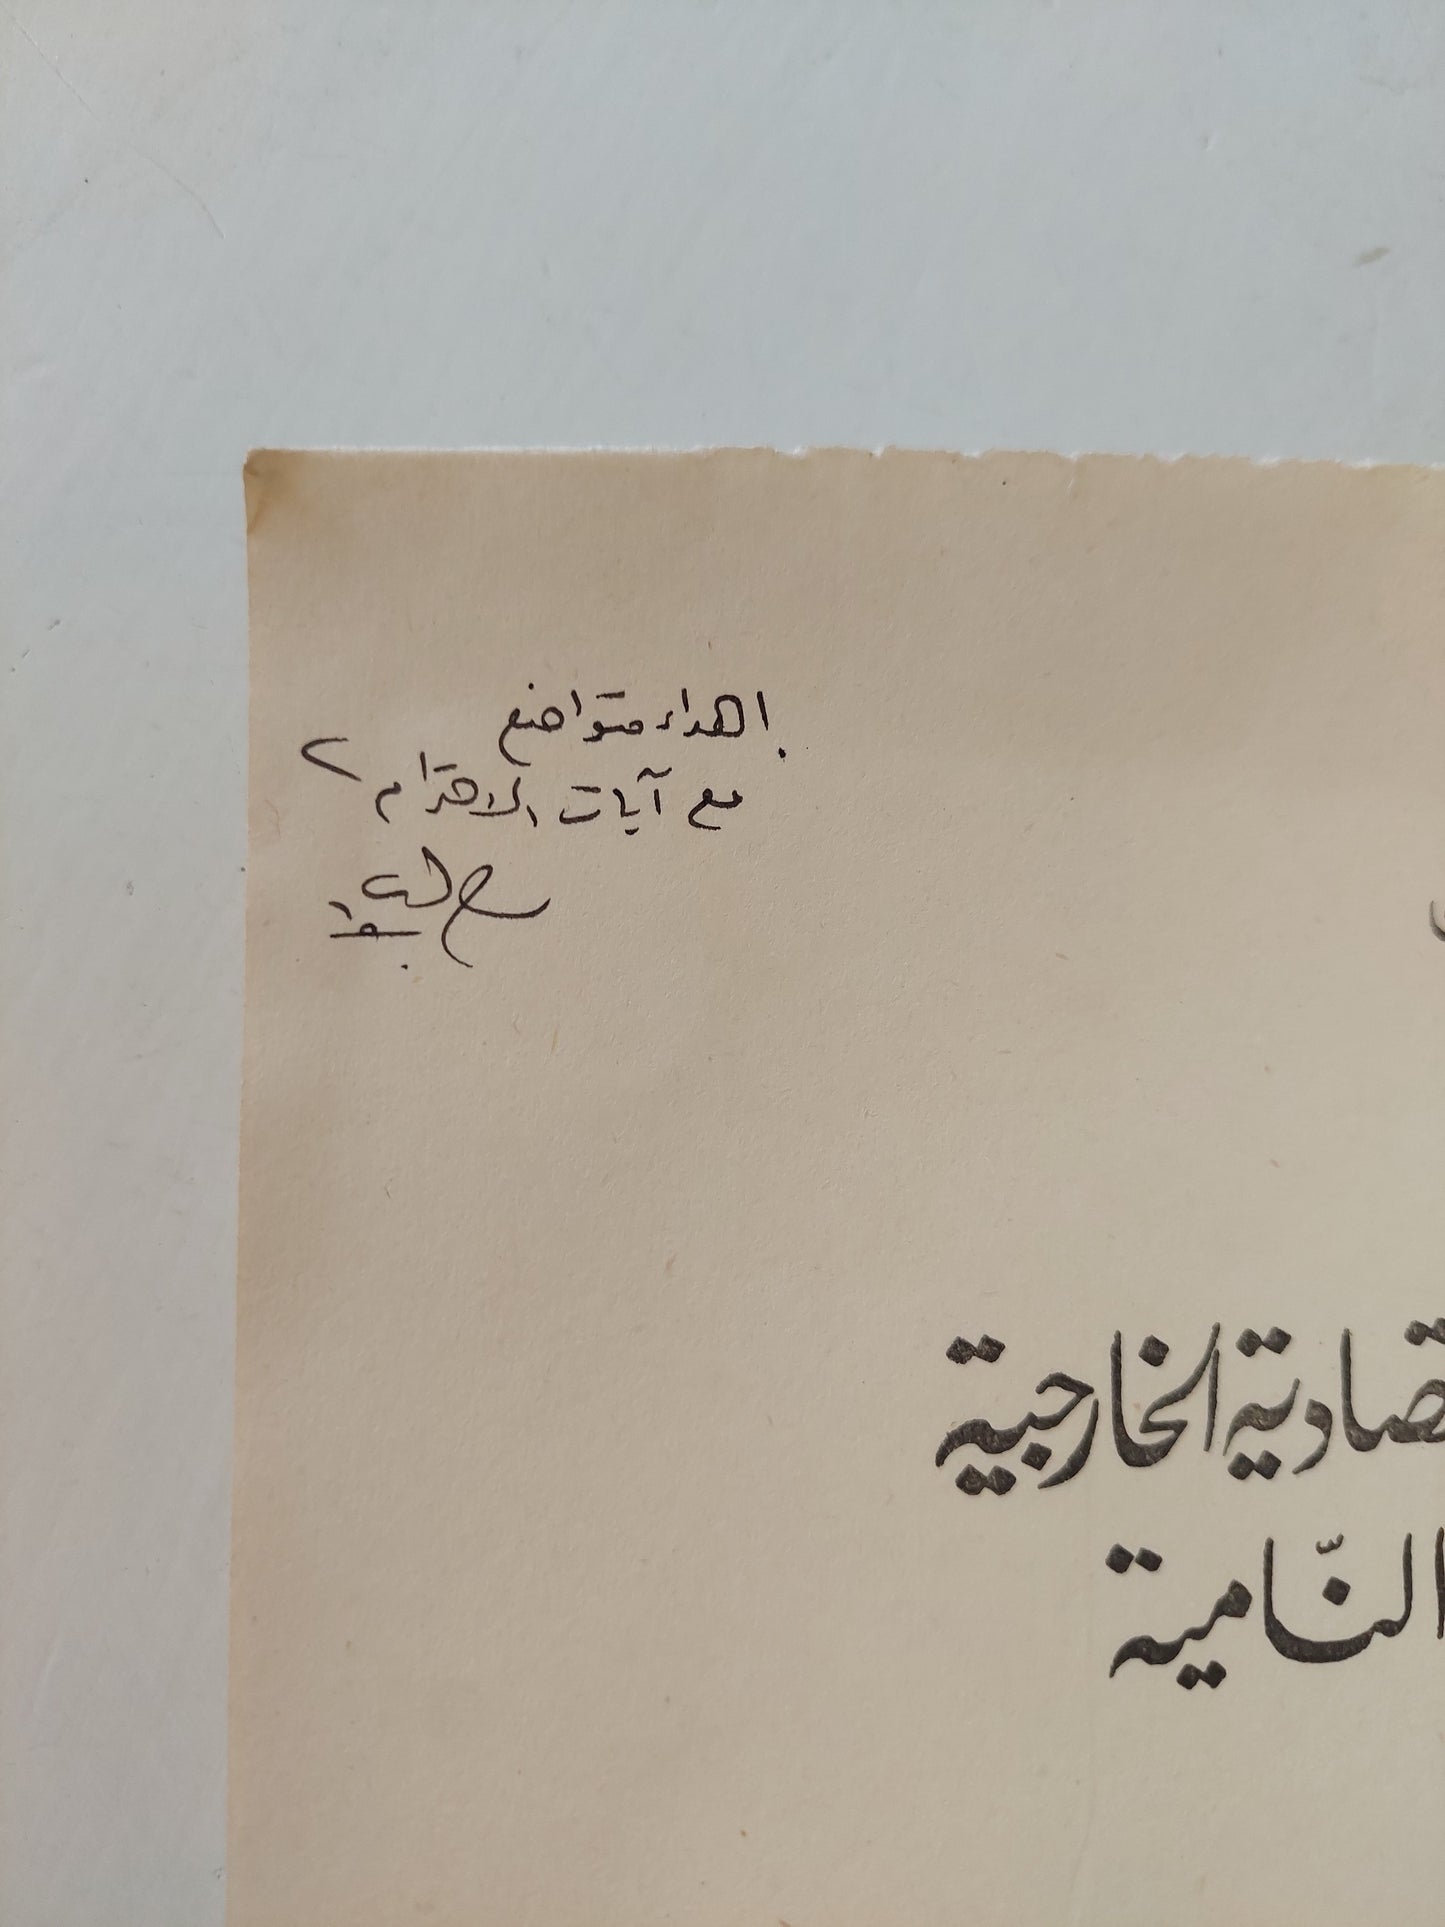 إهداء متواضع
مع آيات الاحترام
الخارجية
النّامية